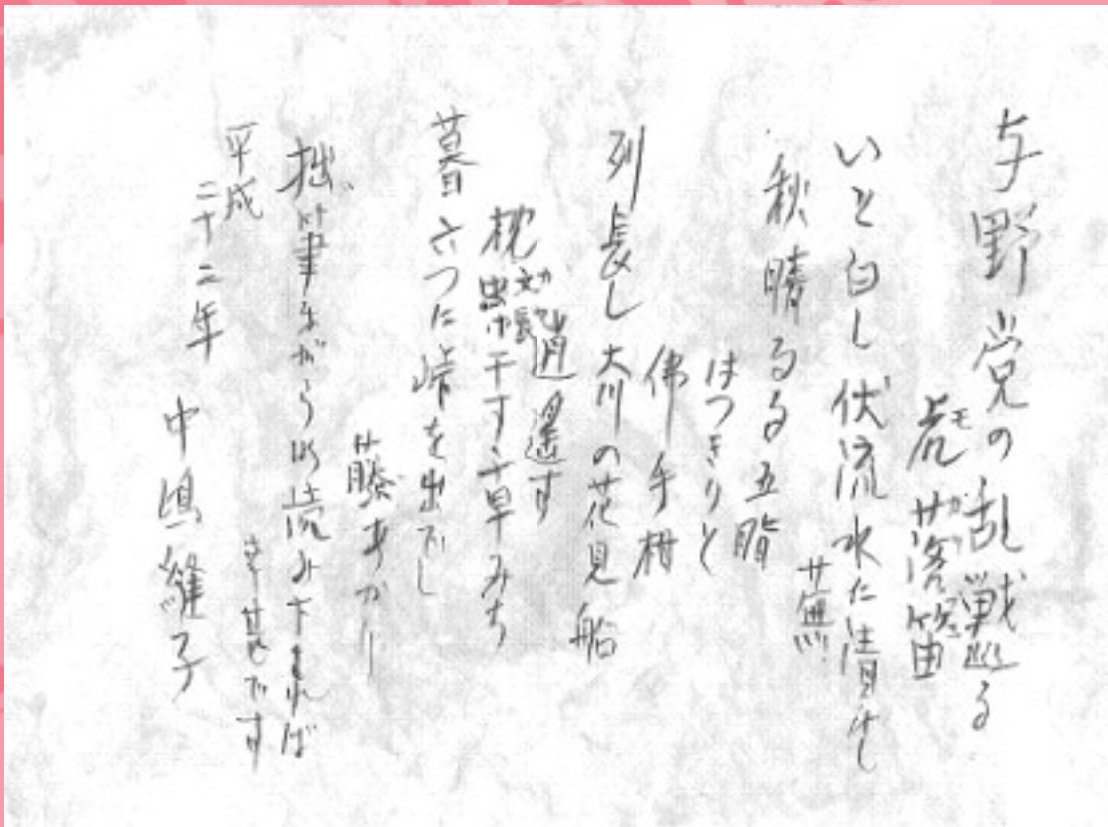 与野党の乱戦巡る
虎落笛
いと白し伏流水に清けし
蕪
秋晴るる五臓
はつきりと
佛手柑
列長し大川の花見船
逍遥す
枕干す草みち
暮六つに峠を出でし
藤あかり
拙筆ながらお読み下されば
幸甚です
平成二十二年 中島縫子